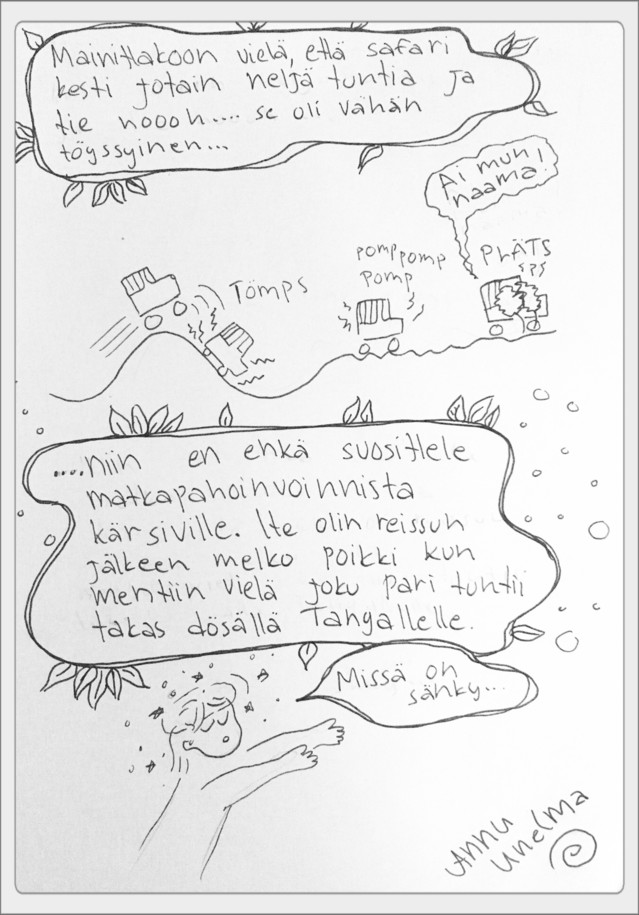 Mainittakoon vielä, että safari
kesti jotain neljä tuntia ja
tie noooh.... se oli vähän
töyssyinen...
Ai mun
naama!
TÖMPS
POMP POMP
POMP
PLÄTS
....niin en ehkä suosittele
matkapahoinvoinnista
kärsiville. Ite olin reissun
jälkeen melko poikki kun
mentiin vielä joku pari tuntii
takas dösällä Tangallelle.
Missä on
sänky...
Annu
Unelma